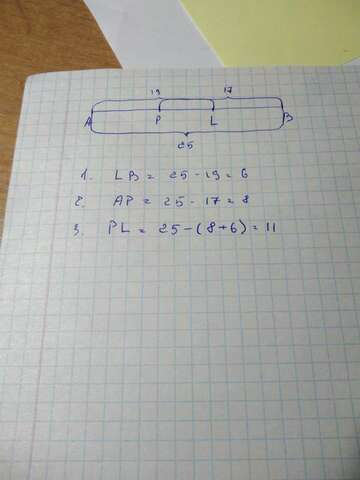 19 17
A P L B
25
1. LB = 25 - 19 = 6
2. AP = 25 - 17 = 8
3. PL = 25 - (8+6) = 11